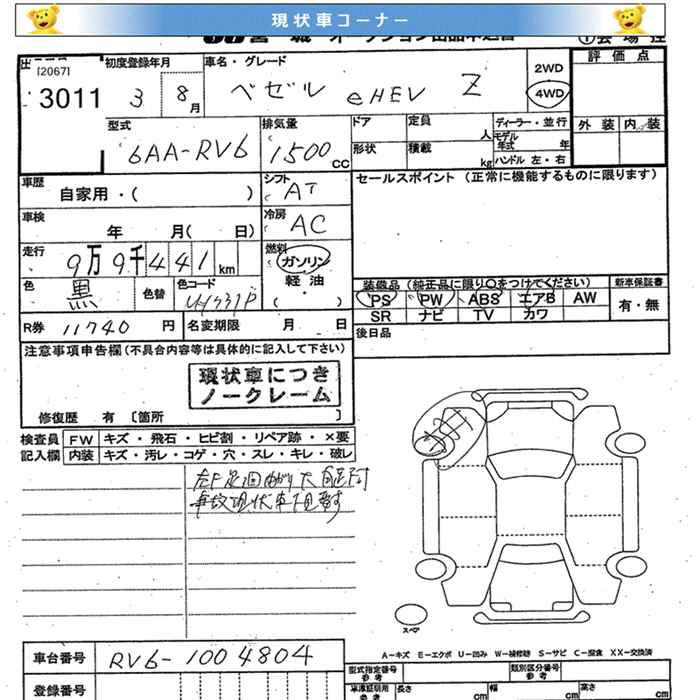 現状車コーナー
[2067]
3011
初度登録年月
3 8月
車名・グレード
ベゼル eHEV Z
2WD
4WD
評価点
外装 内装
型式
6AA-RV6
排気量
1500 CC
ドア 定員 人
形状 積載 kg
ディーラー・並行
モデル年式 年
ハンドル 左・右
車歴
自家用・( )
シフト
AT
セールスポイント (正常に機能するものに限ります)
車検
年 月( 日)
冷房
AC
走行
9万9千441km
燃料
ガソリン
軽油
( ・ )
色
黒
色替
色コード
装備品 (純正品に限り○をつけてください)
新車保証書
PS PW ABS エアB AW
有・無
SR ナビ TV カワ
R券 11740 円
名変期限 月 日
後日品
注意事項申告欄(不具合内容等は具体的に記入して下さい)
現状車につき
ノークレーム
修復歴 有 〔箇所 〕
検査員 FW キズ・飛石・ヒビ割・リペア跡・×要
記入欄 内装 キズ・汚レ・コゲ・穴・スレ・キレ・破レ
スペア
A-キズ E-エクボ U-凹み W-補修跡 S-サビ C-腐食 XX-交換済
車台番号 RV6-1004804
登録番号
型式指定番号
参考
類別区分番号
参考
車庫証明用
参考
長さ cm 幅 cm 高さ cm